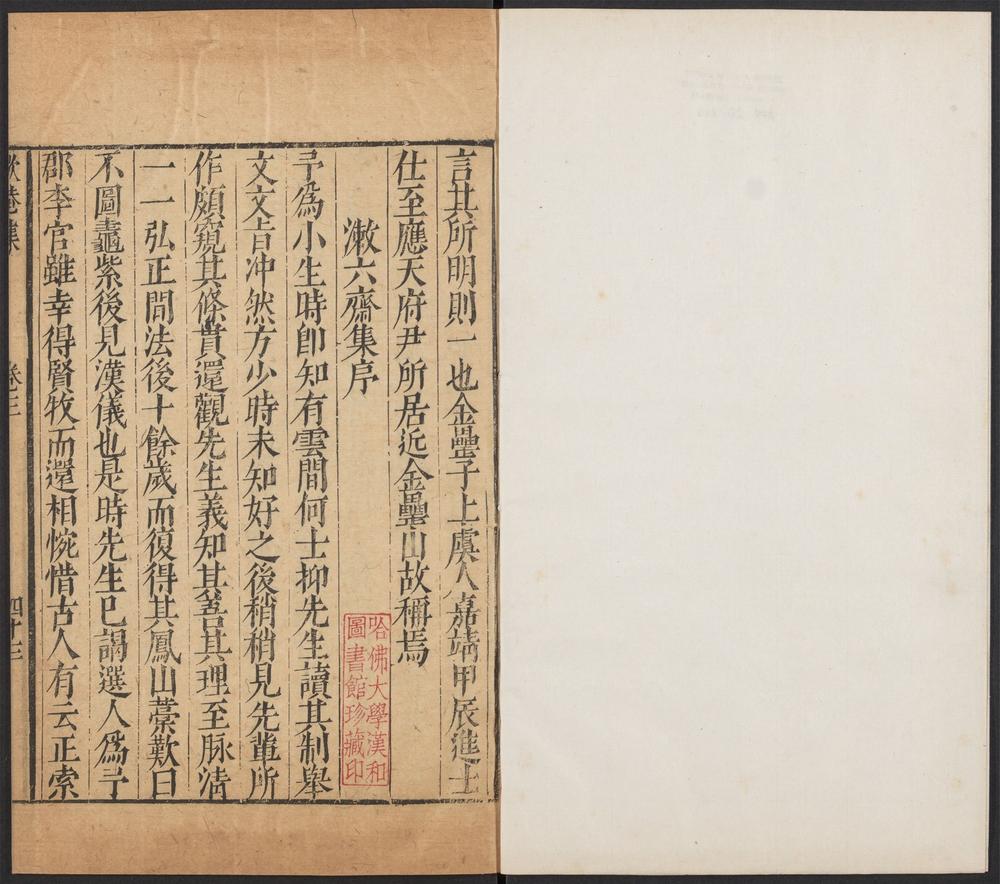 言其所明則一也金罍子上虞人嘉靖甲辰進士
仕至應天府尹所居近金罍山故稱焉
漱六齋集序
予爲小生時即知有雲間何士抑先生讀其制舉
文文旨冲然方少時未知好之後稍稍見先輩所
作頗窺其條貫還觀先生義知其善其理至脉清
一一弘正間法後十餘歲而復得其鳳山藳歎曰
不圖龜紫後見漢儀也是時先生已謁選人爲予
郡李官雖幸得賢牧而還相惋惜古人有云正索
歇菴集 卷三 四十三
哈佛大學漢和
圖書館珍藏印